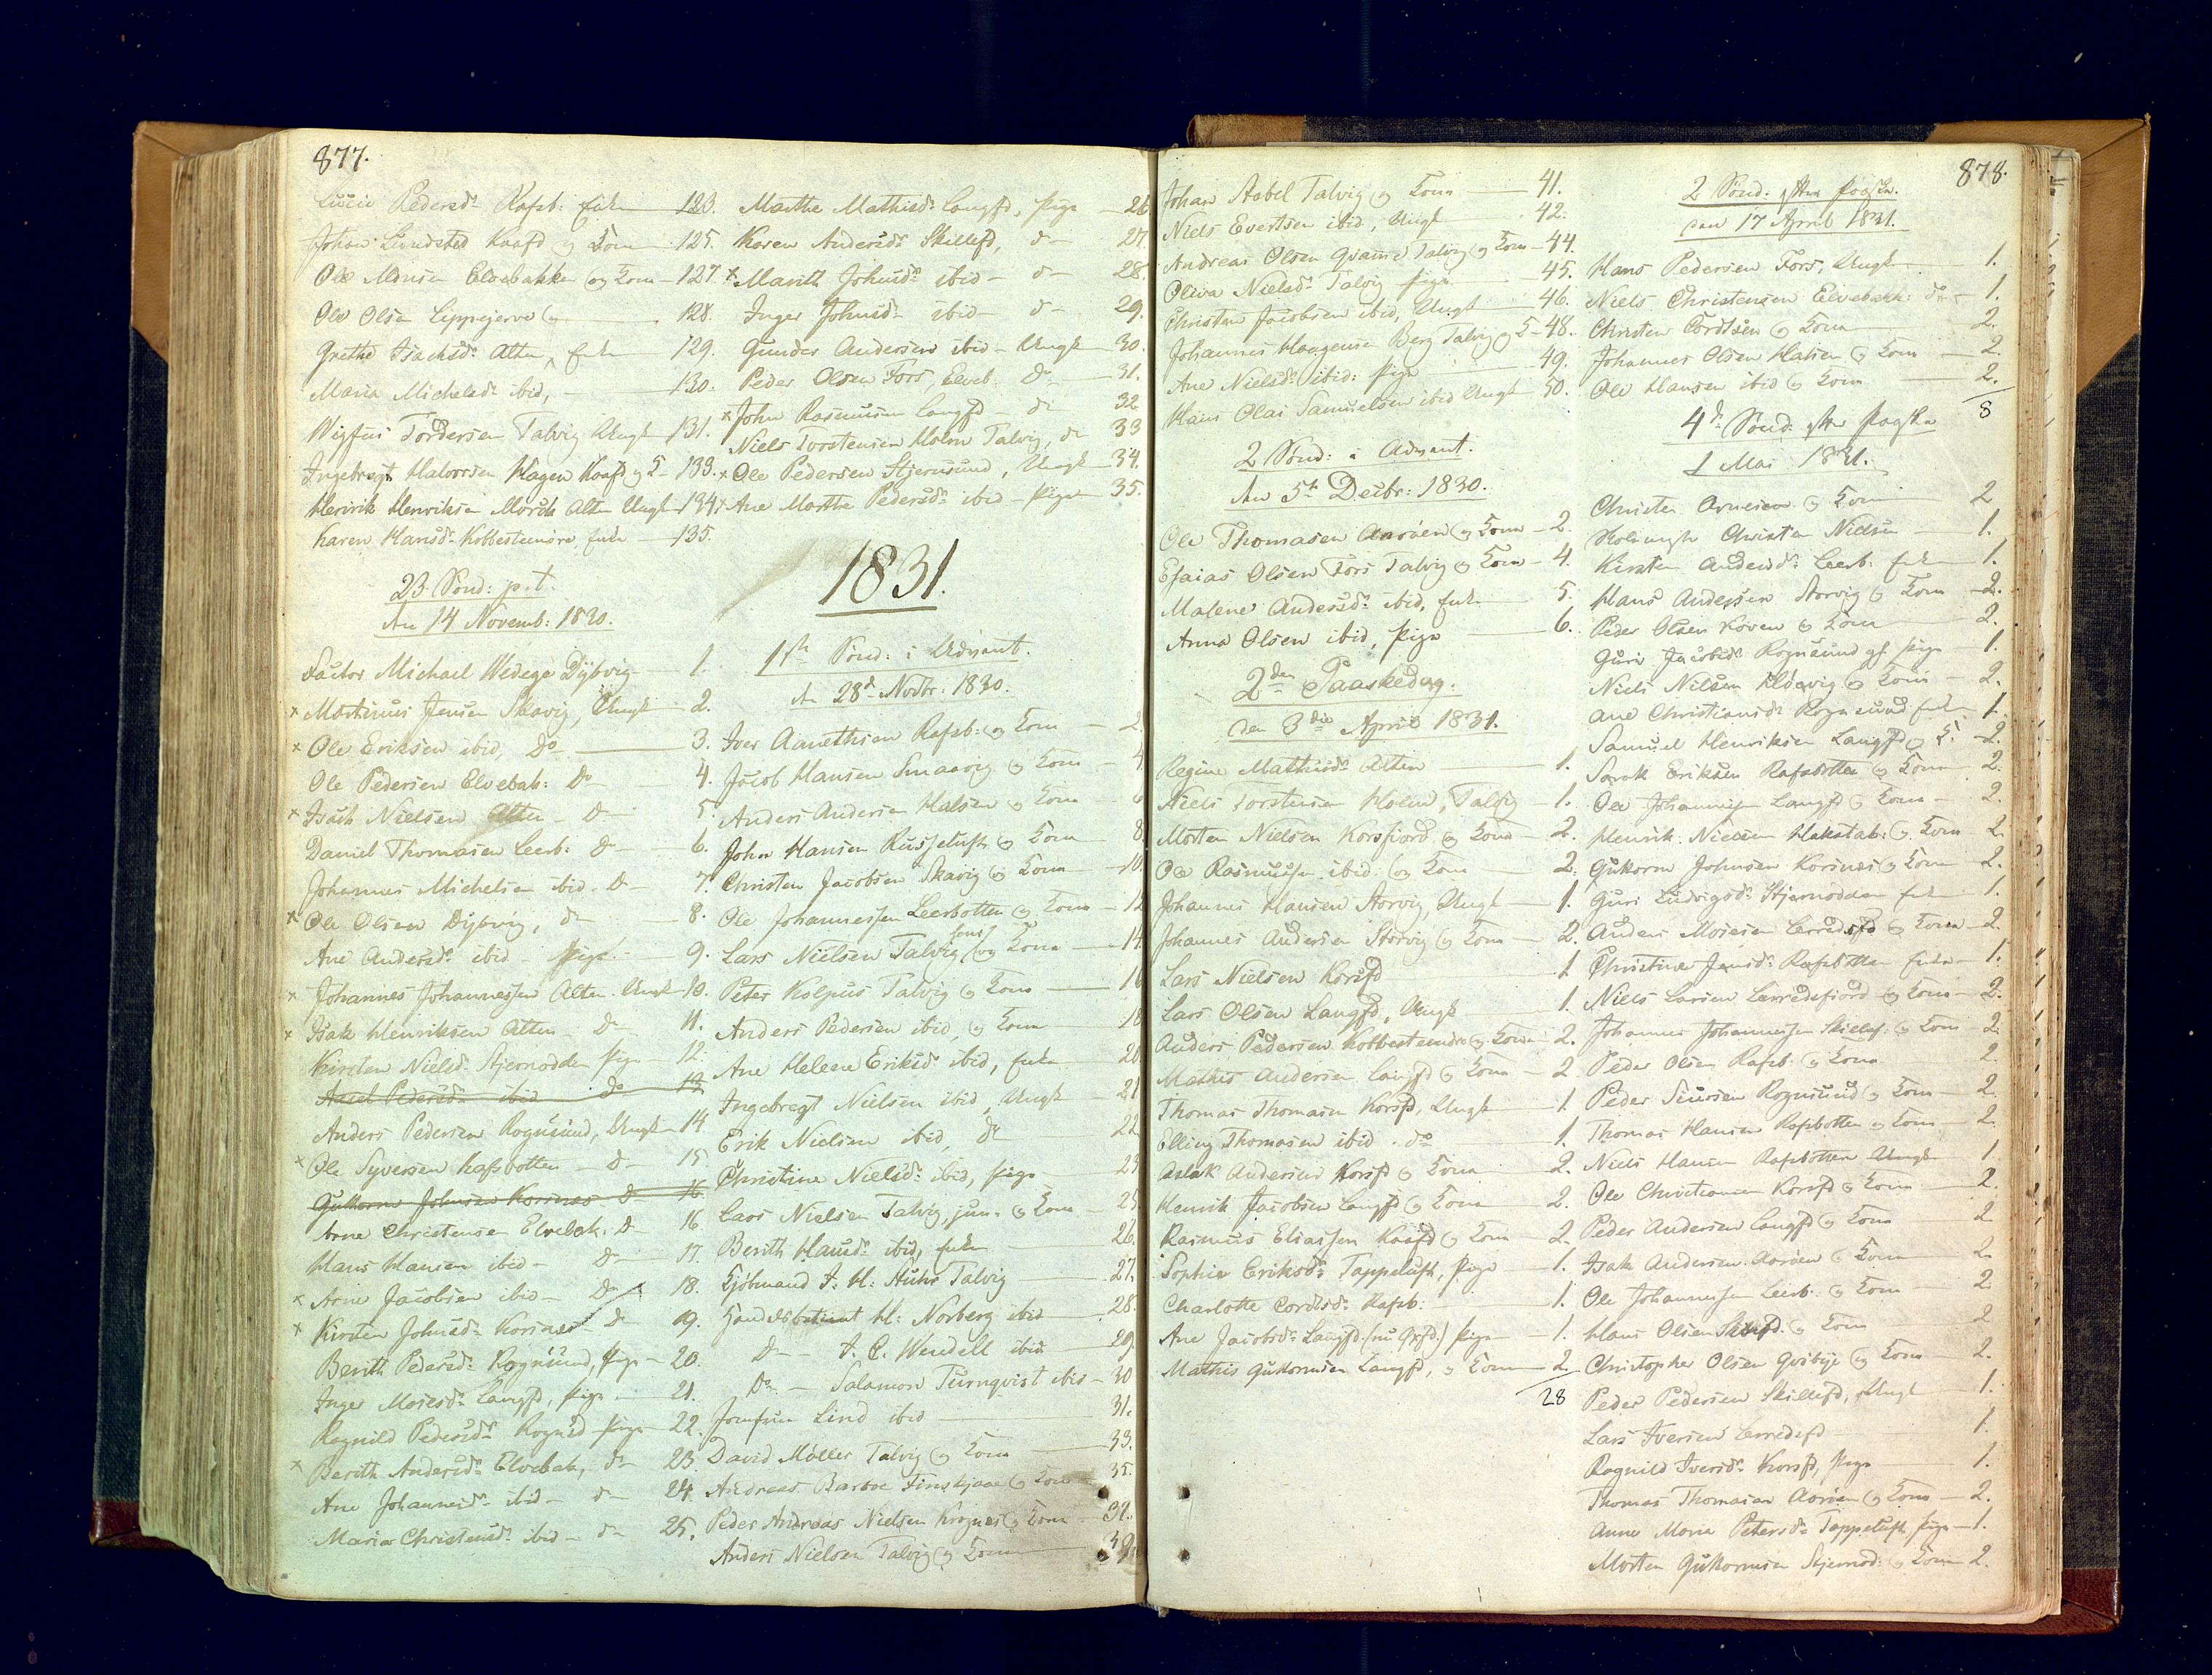 877.
Lucie Pedersdr Rafsb: Enke 123.
Johan Lundsted Kaafd og Kone 125.
Ole Monsen Elvebakken og Kone 127
Ole Olsen 128.
Grethe Isachsdr Alten, Enke 129.
Maria Michelsdr ibid, 130.
Wigfus Tordersen Talvig Ungk 131.
Ingebregt Halvorsen Hagen Kaafd og K 133.
Henrik Henriksen Morch Alten Ungk 134
Karen Hansdr Kobbesteinøre Enke 135.
23 Sönd: p. t.
den 14 Novemb: 1830.
Factor Michael Wedege Dybvig 1.
x Mortinus Jensen Skavig, Ungk 2.
x Ole Eriksen ibid, Do 3.
Ole Pedersen Elvebak: Do 4.
x Isach Nielsen Alten Do 5.
Daniel Thomasen Leerb: Do 6.
Johannes Michelsen ibid. Do 7.
x Ole Olsen Dybvig, do 8.
Ane Andersdr ibid Pige 9.
x Johannes Johannessen Alten Ungk 10.
x Isak Henriksen Alten Do 11.
Kirsten Nielsdr Stjernodden Pige 12.
Pedersdr ibid do 13
Anders Pedersen Rognsund, Ungk 14
x Ole Syversen Rafsbotten D 15.
Gukorm Johnsen Korsnæs D 16
Arne Christensen Elvebak. D 16
Hans Hansen ibid D 17.
x Arne Jacobsen ibid D 18.
x Kirsten Johnsdr Korsnæs D 19.
Berith Pedersdr Rognsund, Pige 20.
Inger Mosesdr Langfd, Pige 21.
Ragnild Pedersdr Rognsd Pige 22.
x Berith Andersdr Elvebak, d 23.
Ane Johannesdr ibid d 24.
Maria Christensdr ibid d 25.
Marthe Mathisdr Langfd, Pige 26
Karen Andersdr Skillefd, d 27.
x Marith Johnsdr ibid d 28.
Inger Johnsdr ibid d 29.
Gunder Andersen ibid Ungk 30.
Peder Olsen Fors, Elveb. Do 31.
x John Rasmusen Langfd do 32
Niels Torstensen Holm Talvig, do 33
x Ole Pedersen Stjernsund, Ungk 34.
x Ane Marthe Pedersdr ibid Pige 35.
1831.
1ste Sönd: i Advent.
den 28d Novbr: 1830.
Iver Aanethsen Rafsb: og Kone 2.
Jacob Hansen Smaavig og Kone 4.
Anders Andersen Halsen og Kone 6
John Hansen Russeluft og Kone 8
Christen Jacobsen Skavig og Kone 10.
Ole Johannessen Leerbotten og Kone 12
Lars Nielsen Talvig sen: og Kone 14
Peter Kolpus Talvig og Kone 16
Anders Pedersen ibid, og Kone 18
Ane Helene Eriksdr ibid, Enke 20
Ingebregt Nielsen ibid, Ungk 21
Erik Nielsen ibid, do 22
Christine Nielsdr ibid, Pige 23
Lars Nielsen Talvig, jun. og Kone 25
Berith Hansdr ibid, Enke 26.
Kjöbmand J. H: Talvig 27.
Handelsbetient H: Norberg ibid 28.
Do J. C. Wendell ibid 29.
Do Salamon Turnqvist ibid 30
Jomfrue Lind ibid 31.
David Møller Talvig og Kone 33.
Andreas Baroe og Kone 35.
Peder Andreas Nielsen Krognes og Kone 37.
Anders Nielsen Talvig og Kone 39
878.
Johan Aabel Talvig og Kone 41.
Niels Evertsen ibid, Ungk 42.
Andreas Olsen Talvig og Kone 44.
Oliva Nielsdr Talvig Pige 45.
Christen Jacobsen ibid, Ungk 46.
Johannes Haagensen Berg Talvig og K 48.
Ane Nielsdr ibid: Pige 49.
Hans Olai Samuelsen ibid Ungk 50.
2 Sönd: i Advent.
den 5te Decbr: 1830.
Ole Thomasen Aaroen og Kone 2.
Esaias Olsen Fors Talvig og Kone 4.
Malene Andersdr ibid, Enke 5.
Anna Olsen ibid, Pige 6.
2den Paaskedag.
den 3die April 1831.
Regine Mathisdr Alten 1.
Niels Torstensen Holm, Talvig 1.
Morten Nielsen Korsfiord og Kone 2.
Ole Rasmussen ibid. og Kone 2.
Johannes Hansen Storvig, Ungk 1.
Johannes Andersen Storvig og Kone 2.
Lars Nielsen Korsfd 1
Lars Olsen Langfd, Ungk 1
Anders Pedersen Kobbesteinøre og Kone 2.
Mathis Andersen Langfd og Kone 2
Thomas Thomasen Korsfd, Ungk 1
Elling Thomasen ibid. do 1.
Aslak Andersen Korsfd og Kone 2.
Henrik Jacobsen Langfd og Kone 2.
Rasmus Eliassen Kaafd og Kone 2
Sophia Eriksdr Tappeluft, Pige 1.
Charlotte Cordtsdr Rafsb: 1.
Ane Jacobsdr Langfd. Pige 1.
Mathis Gukormsen Langfd, og Kone 2
28
2 Sönd: efter Paaske.
den 17 April 1831.
Hans Pedersen Fors, Ungk 1.
Niels Christensen Elvebakk: do 1.
Christen Cordtsen og Kone 2.
Johannes Olsen Halsen og Kone 2.
Ole Hansen ibid og Kone 2.
8
4de Sönd: efter Paaske
1 Mai 1831.
Christen Arnesen og Kone 2
Christen Nielsen 1.
Kirsten Andersdr Leerb. Enke 1.
Hans Andersen Storvig og Kone 2.
Peder Olsen Koven og Kone 2.
Guri Jacobsdr Rognsund Pige 1.
Niels Nilsen og Kone 2.
Ane Christiansdr Rognsund Enke 1.
Samuel Henriksen Langfd og K. 2.
Eriksen Rafsbotten og Kone 2.
Ole Johannessen Langfd og Kone 2.
Henrik Nielsen Hakstab: og Kone 2
Gukorm Johnsen Korsnæs og Kone 2.
Guri Ludvigsdr Stjernodden Enke 1.
Anders Mosesen Lerredsfd og Kone 2.
Christine Jensdr Rafsbotten Enke 1.
Niels Larsen Lerredsfiord og Kone 2.
Johannes Johannessen Skillef: og Kone 2.
Peder Olsen Rafsb. og Kone 2
Peder Siursen Rognsund og Kone 2.
Thomas Hansen Rafsbotten og Kone 2.
Niels Hansen Rafsbotten Ungk 1
Ole Christiansen Korsfd og Kone 2.
Peder Andersen Langfd og Kone 2
Isak Andersen Aaroen og Kone 2.
Ole Johannessen Leerb. og Kone 2
Hans Olsen og Kone 2
Christopher Olsen Qvibye og Kone 2.
Peder Pedersen Skillefd, Ungk 1.
Lars Iversen Lerredsfd 1.
Ragnild Iversdr Korsfd, Pige 1.
Thomas Thomasen Aaroen og Kone 2.
Anne Marie Petersdr Tappeluft Pige 1.
Morten Gukormsen Stjernod: og Kone 2.